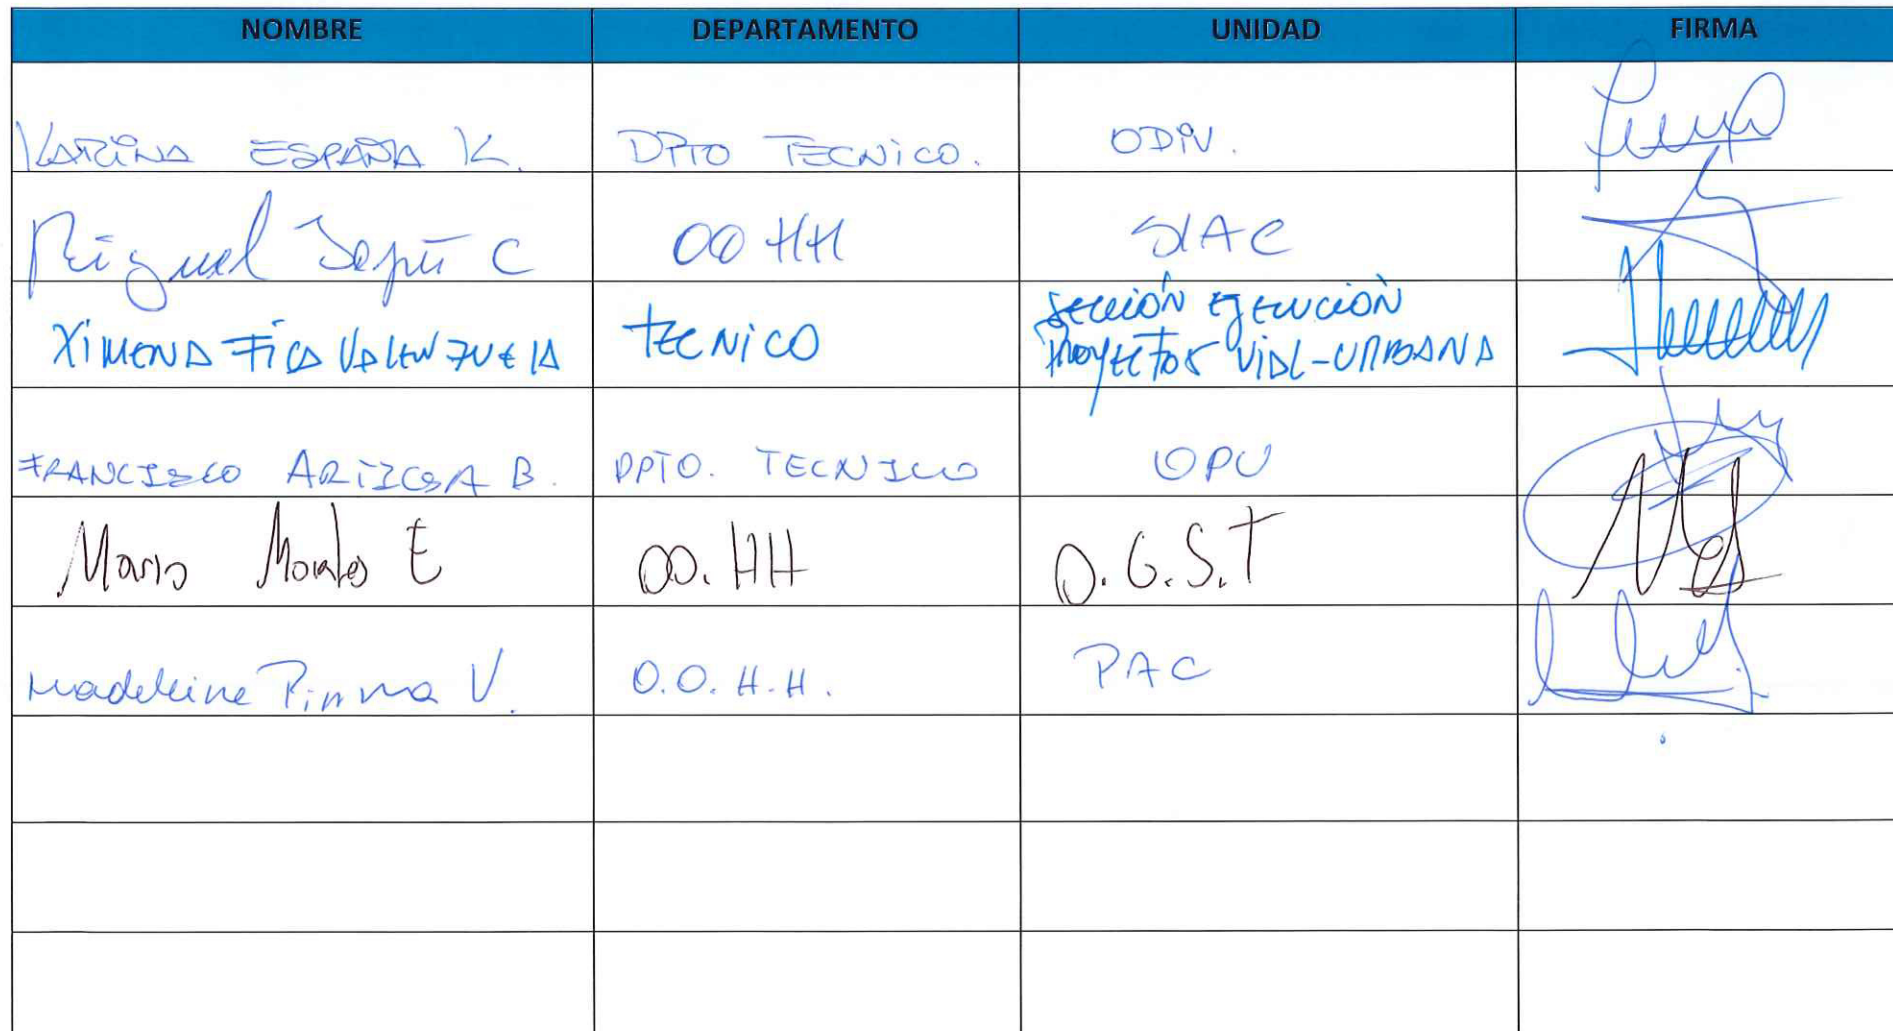 NOMBRE DEPARTAMENTO UNIDAD FIRMA
KARINA ESPAÑA K. DPTO TECNICO. ODIV.
Miguel C OOHH SIAC
XIMENA FICA VALENZUELA TECNICO SECCIÓN EJECUCIÓN
PROYECTOS VIAL-URBANA
FRANCISCO B. DPTO. TECNICO OPU
Mario Morales E OO.HH O.G.S.T
Madeleine V. O.O.H.H. PAC